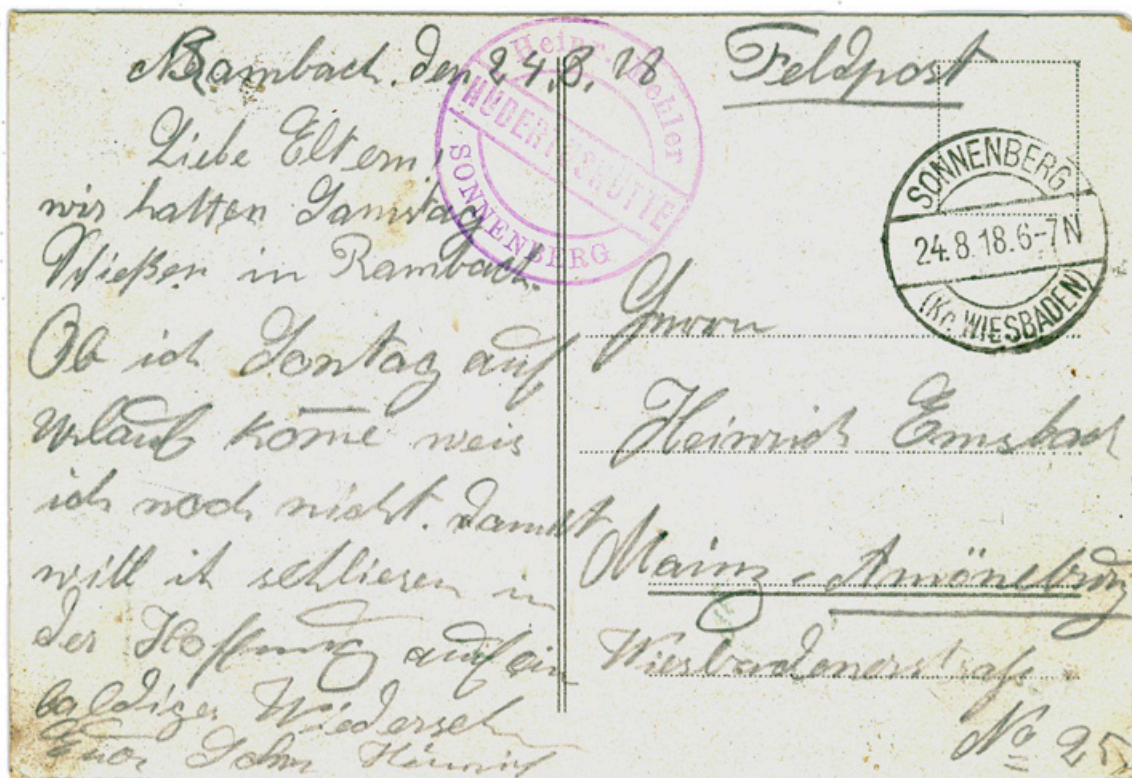 Rambach. den 24.8.18
Liebe Eltern!
wir hatten Samstag
Schießen in Rambach.
Ob ich Sontag auf
Urlaub kom̄e weis
ich noch nicht. Damit
will ich schliesen in
der Hoffnung auf ein
baldiges Wiederseh
Euer Sohn Heinrich
Feldpost
Heinr. Köhler
HUBERTUSHÜTTE
SONNENBERG
SONNENBERG
24.8.18.6-7N
(Kr. WIESBADEN)
Herrn
Heinrich Emsbach
Mainz-Amöneburg
Wiesbadenerstraße
No 25